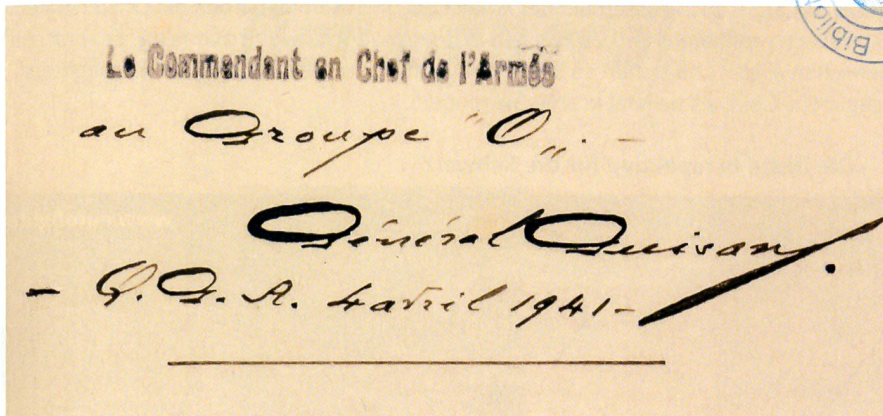 Biblio
Le Commandant en Chef de l'Armée
au Groupe "O„.-
Général Guisan.
- Q.G.A. 4 avril 1941-